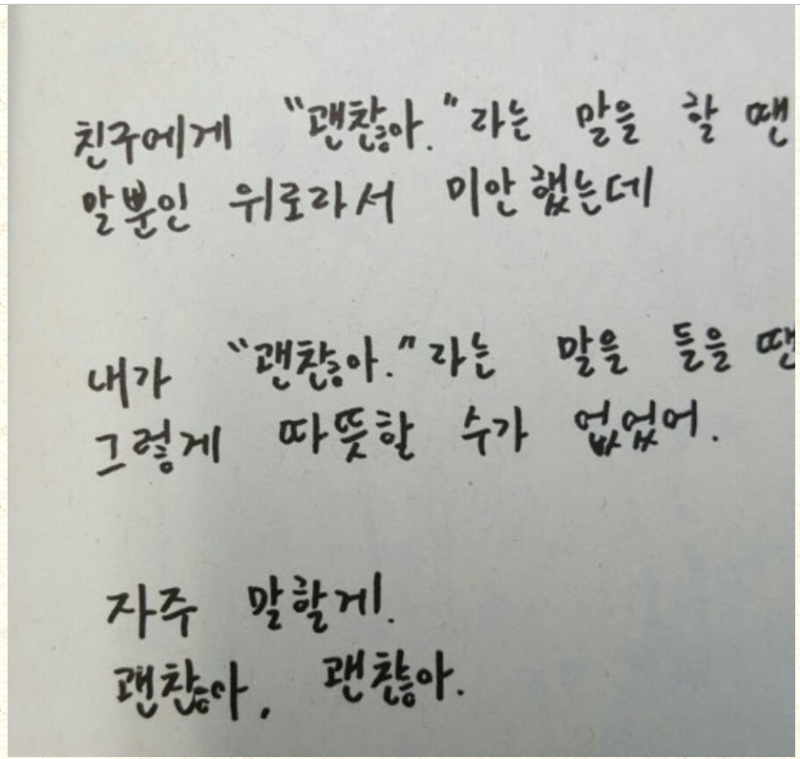 친구에게 "괜찮아."라는 말을 할 땐
말뿐인 위로라서 미안했는데
내가 "괜찮아."라는 말을 들을 땐
그렇게 따뜻할 수가 없었어.
자주 말할게.
괜찮아, 괜찮아.